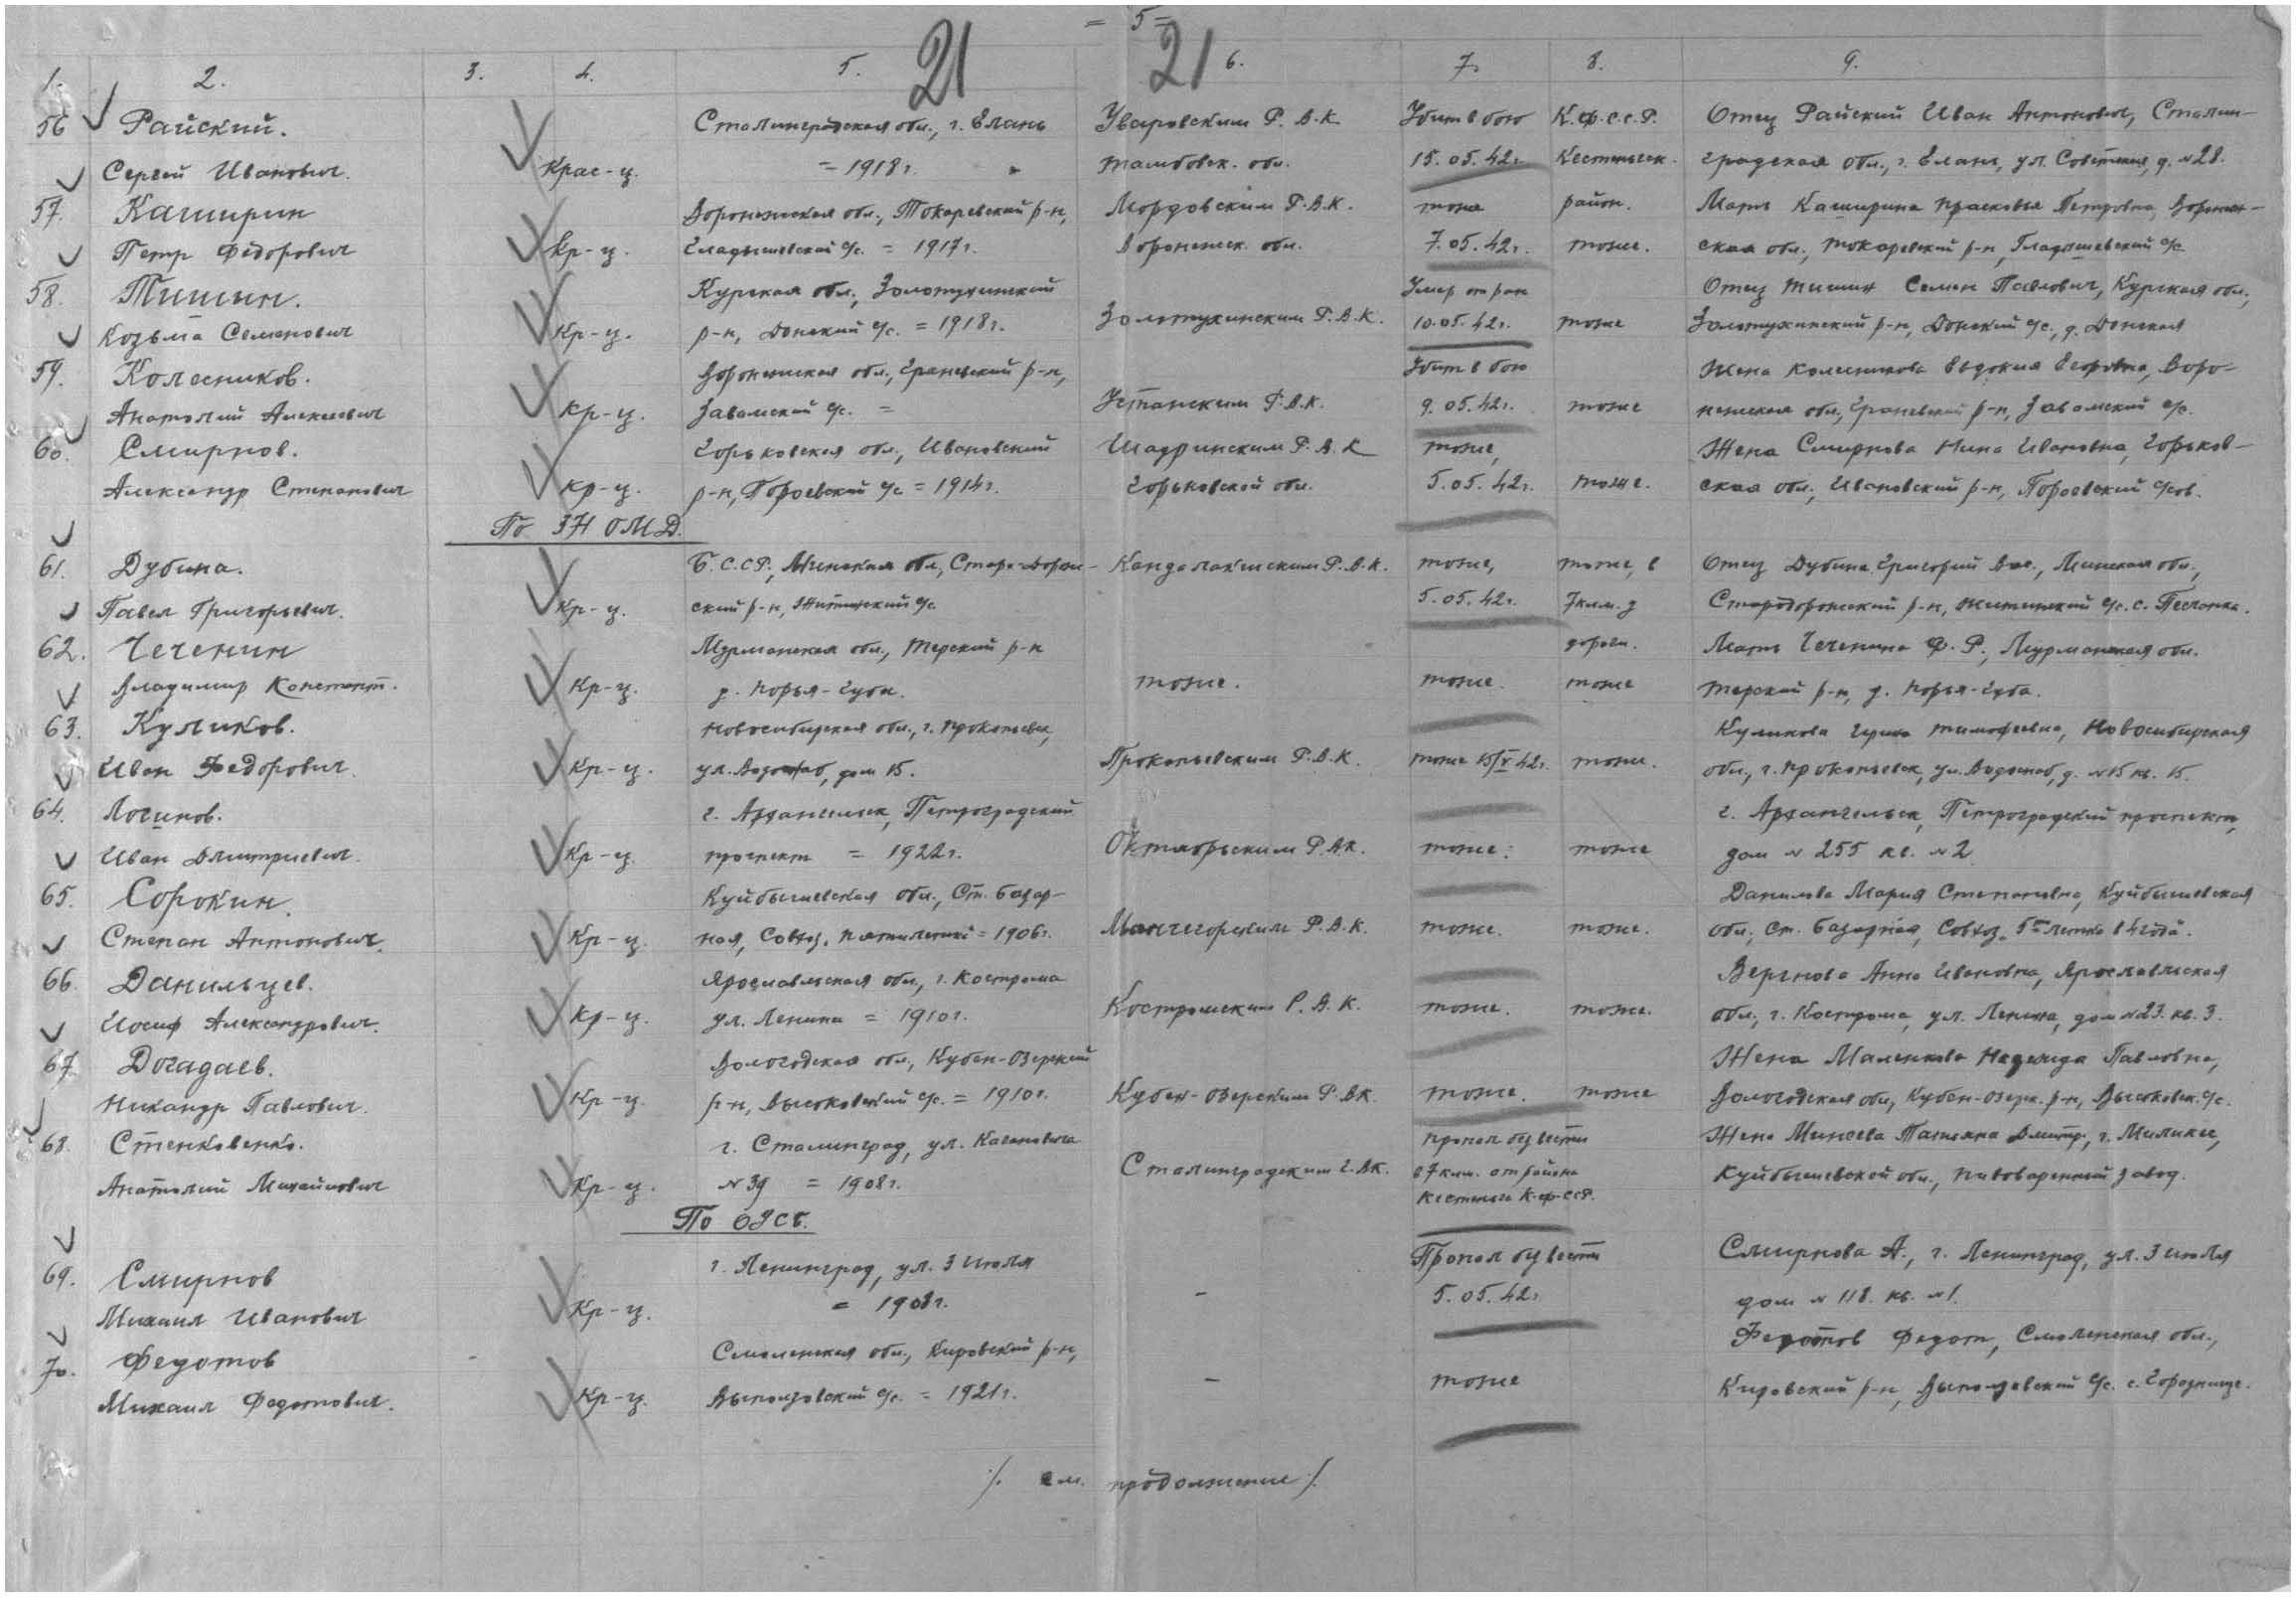 = 5 =
21 21
1. 2. 3. 4. 5. 6. 7. 8. 9.
56 Райский. Сталинградская обл., г. Елань Уваровским Р.В.К. Убит в бою К.Ф.С.С.Р. Отец Райский Иван Антонович, Сталин-
Сергей Иванович. Крас-ц. = 1918 г. Тамбовск. обл. 15.05.42г. Кестеньгск. градская обл., г. Елань, ул. Советская, д. №28.
57. Каширин Воронежская обл., Токаревский р-н, Мордовским Р.В.К. тоже район. Мать Каширина Прасковья Петровна, Воронеж-
Петр Федорович Кр-ц. Гладышевский с/с. = 1917г. Воронежск. обл. 7.05.42г. тоже. ская обл., Токаревский р-н, Гладышевский с/с
58. Тишин. Курская обл., Золотухинский Умер от ран Отец Тишин Семен Павлович, Курская обл.,
Козьма Семенович Кр-ц. р-н, Донской с/с. = 1918г. Золотухинским Р.В.К. 10.05.42г. тоже Золотухинский р-н, Донской с/с., д. Донская
59. Колесников. Воронежская обл., р-н, Убит в бою Жена Колесникова Евдокия Егоровна, Воро-
Анатолий Алексеевич Кр-ц. с/с. = Р.В.К. 9.05.42г. тоже нежская обл., р-н, с/с.
60. Смирнов. Горьковская обл., Ивановский Шадринским Р.В.К тоже, Жена Смирнова Нина Ивановна, Горьков-
Александр Степанович Кр-ц. р-н, с/с = 1914г. Горьковской обл. 5.05.42г. тоже. ская обл., Ивановский р-н, с/сов.
По ЗН ОМД.
61. Дубина. Б.С.С.Р., Минская обл., Старо-Дорож- Кандалакшским Р.В.К. тоже, тоже, в Отец Дубина Григорий Вас., Минская обл.,
Павел Григорьевич. Кр-ц. ский р-н, Житинский с/с. 5.05.42г. 7клм. з Стародорожский р-н, Житинский с/с. с. Песчанка.
62. Чеченин Мурманская обл., Терский р-н дороги. Мать Чеченина Ф.Р., Мурманская обл.
Владимир Констант. Кр-ц. д. Порья-Губа. тоже. тоже. тоже Терский р-н, д. Порья-Губа.
63. Куликов. Новосибирская обл., г. Прокопьевск, Куликова Тимофеевна, Новосибирская
Иван Федорович. Кр-ц. ул. дом 15. Прокопьевским Р.В.К. тоже 15/V 42г. тоже. обл., г. Прокопьевск, ул. д. №15 кв. 15.
64. Логинов. г. Архангельск, Петроградский г. Архангельск, Петроградский проспект,
Иван Дмитриевич. Кр-ц. проспект = 1922г. Октябрьским Р.В.К. тоже. тоже дом № 255 кв. №2
65. Сорокин. Куйбышевская обл., Ст. Базар- Данилова Мария Степановна, Куйбышевская
Степан Антонович. Кр-ц. ная, Совхоз, = 1906г. Мончегорским Р.В.К. тоже. тоже. обл., Ст. Базарная, Совхоз. 5ти летка в 4 года.
66. Данильцев. Ярославльская обл., г. Кострома Анна Ивановна, Ярославльская
Иосиф Александрович. Кр-ц. ул. Ленина = 1910г. Костромским Р.В.К. тоже. тоже. обл., г. Кострома, ул. Ленина, дом №23. кв. 3.
67 Догадаев. Вологодская обл., Кубен-Озерский Жена Маленкова Надежда Павловна,
Никандр Павлович. Кр-ц. р-н, Высоковский с/с. = 1910г. Кубен-Озерским Р.ВК. тоже. тоже Вологодская обл., Кубен-Озерк. р-н, Высоковск. с/с.
68. Стенковенко. г. Сталинград, ул. Кагановича Пропал безвести Жена Минеева Татьяна Дмитр., г. Мелекес,
Анатолий Михайлович Кр-ц. №39 = 1908г. Сталинградским Г.ВК. в 7клм. от района Куйбышевской обл., Пивоваренный завод.
Кестеньга К-Ф-ССР.
По ОЛСБ.
69. Смирнов г. Ленинград, ул. 3 Июля Пропал безвести Смирнова А., г. Ленинград, ул. 3 Июля
Михаил Иванович Кр-ц. = 1908г. - 5.05.42г. дом № 118. кв. №1.
70. Федотов Смоленская обл., Кировский р-н, Федотов Федот, Смоленская обл.,
Михаил Федотович. Кр-ц. Выползовский с/с. = 1921г. - тоже Кировский р-н, Выползовский с/с. с. Городище.
/. см. продолжение /.